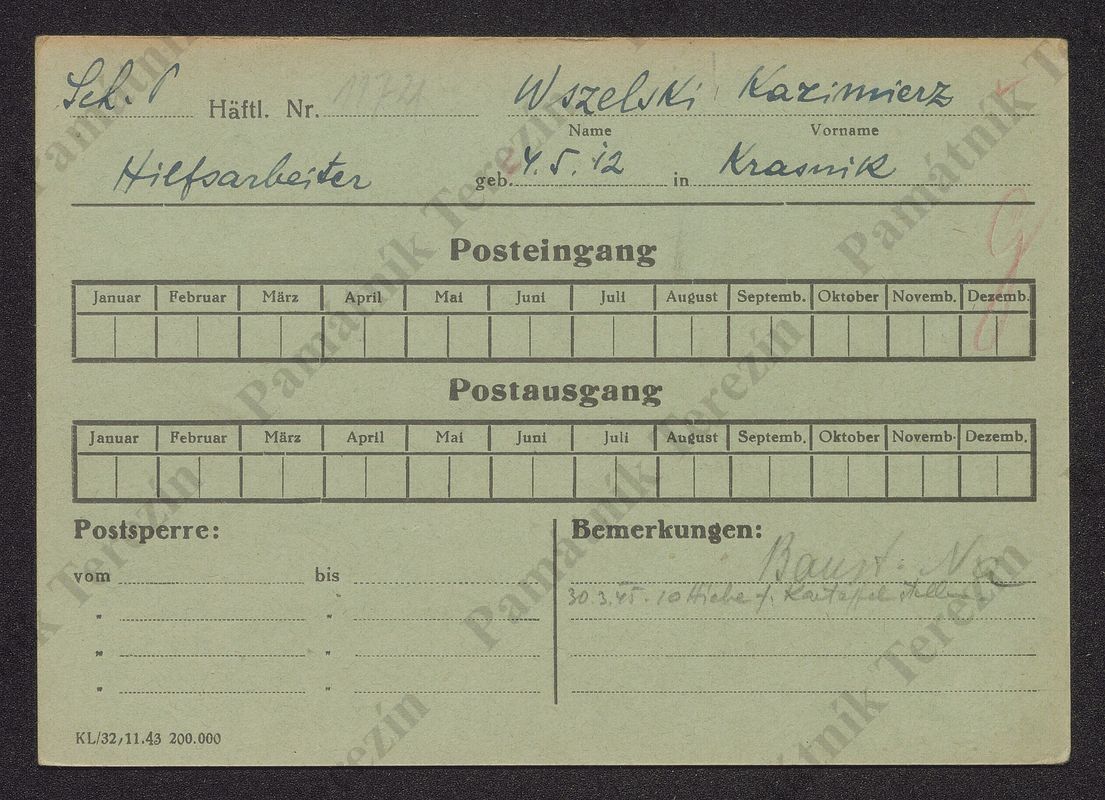 Sch. P Häftl. Nr. 11721 Wszelski Kazimierz
Name Vorname
Hilfsarbeiter geb. 4. 5. 12 in Krasnik
Posteingang
Januar Februar März April Mai Juni Juli August Septemb. Oktober Novemb. Dezemb.
Postausgang
Januar Februar März April Mai Juni Juli August Septemb. Oktober Novemb. Dezemb.
Postsperre: Bemerkungen:
Baust.
vom bis
30.3.45. 10 Hiebe f. Kartoffel
" "
" "
" "
KL/32/11.43 200.000
Památník Terezín